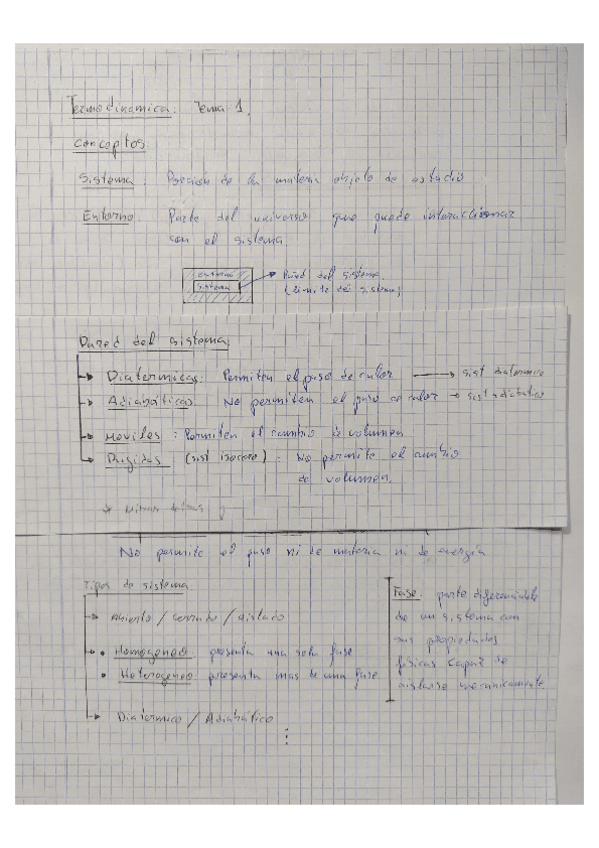 Termodinamica: Tema 1.
Conceptos
Sistema: Porcion de la materia objeto de estudio
Entorno: Parte del universo que puede interaccionar
con el sistema.
entorno
sistema
Pared del sistema
(limite del sistema)
Pared del sistema
Diatermicas: Permiten el paso de calor → sist diatermico
Adiabáticas: No permiten el paso de calor → sist adiabatico
Moviles: Permiten el cambio de volumen
Rigidas (sist isocoro): No permite el cambio
de volumen.
No permite el paso ni de materia ni de energía
Tipos de sistema
Abierto / cerrado / aislado
Homogeneo: presenta una sola fase
Heterogeneo: presenta mas de una fase
Diatermico / Adiabático
Fase: parte diferenciable
de un sistema con
sus propiedades
físicas capaz de
aislarse mecanicamente